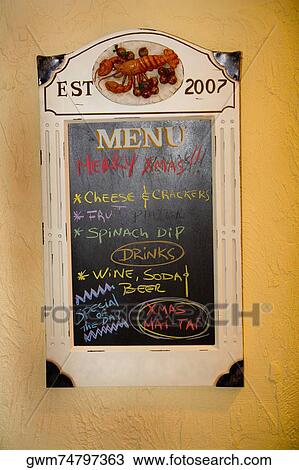 EST 2007
MENU
MERRY XMAS!!!
* CHEESE & CRACKERS
* FRUIT PLATTER
* SPINACH DIP
DRINKS
* WINE, SODA &
BEER
SPECIAL
OF
THE DAY
XMAS
MAI TAI
© fotosearch®
gwm74797363 www.fotosearch.com